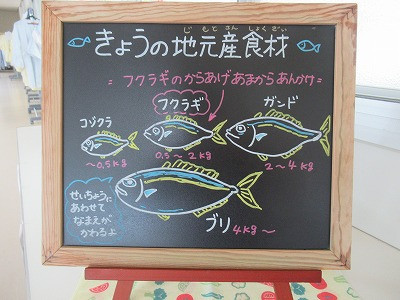 きょうの地元産食材
じもとさんしょくざい
=フクラギのからあげあまからあんかけ=
コゾクラ
フクラギ
ガンド
～0.5kg
0.5～2kg
2～4kg
せいちょうに
あわせて
なまえが
かわるよ
ブリ
4kg～